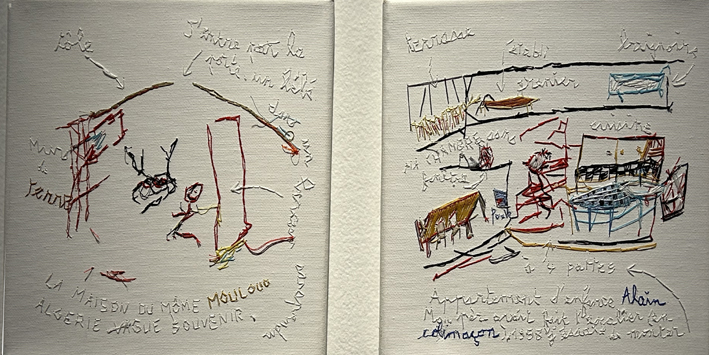 tôle
J'entre par la
porte, un bébé
dans
Murs
de
terre
LA MAISON DU MÔME MOULOUD
ALGERIE VAGUE SOUVENIR.
terrasse
établi
grenier
baignoire
cuisine
MA CHAMBRE sans
fenêtre
Porte
à 4 pattes
Appartement d'enfance Alain
Mon père avait fait l'escalier (en
colimaçon) 1958 j'essaie de monter